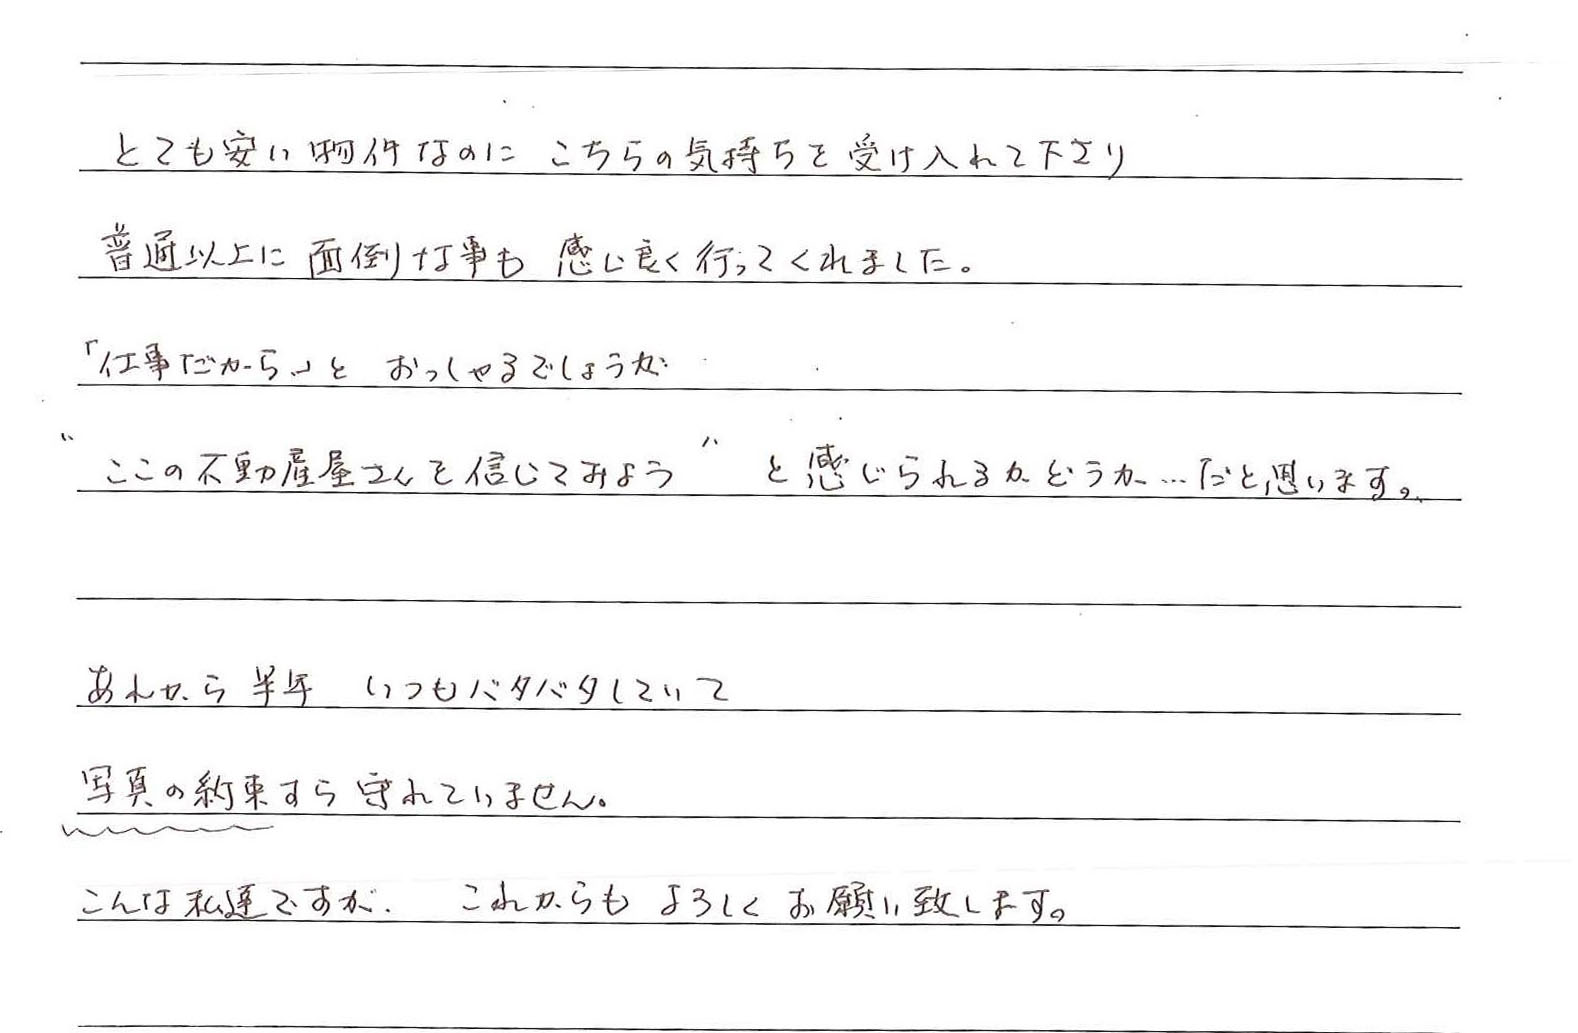 とても安い物件なのに こちらの気持ちを受け入れて下さり
普通以上に面倒な事も 感じ良く行ってくれました。
「仕事だから」と おっしゃるでしょうが
"ここの不動産屋さんを信じてみよう" と感じられるかどうか…だと思います。
あれから半年 いつもバタバタしていて
写真の約束すら守れていません。
こんな私達ですが、 これからも よろしくお願い致します。